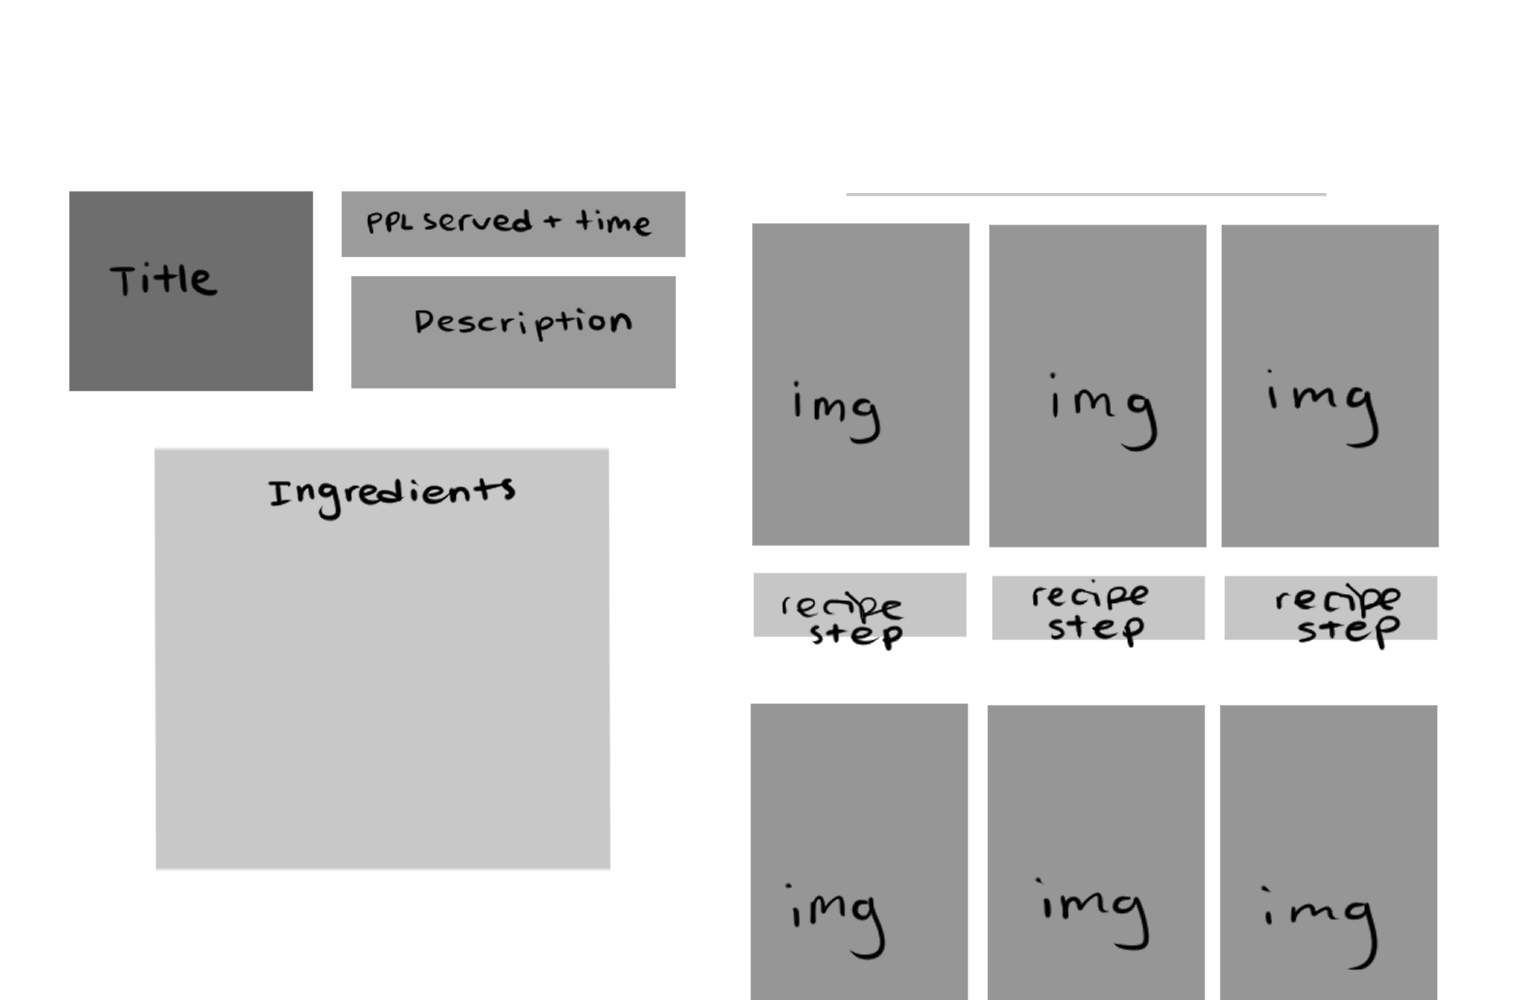 Title
PPL served + time
Description
Ingredients
img
img
img
recipe
step
recipe
step
recipe
step
img
img
img